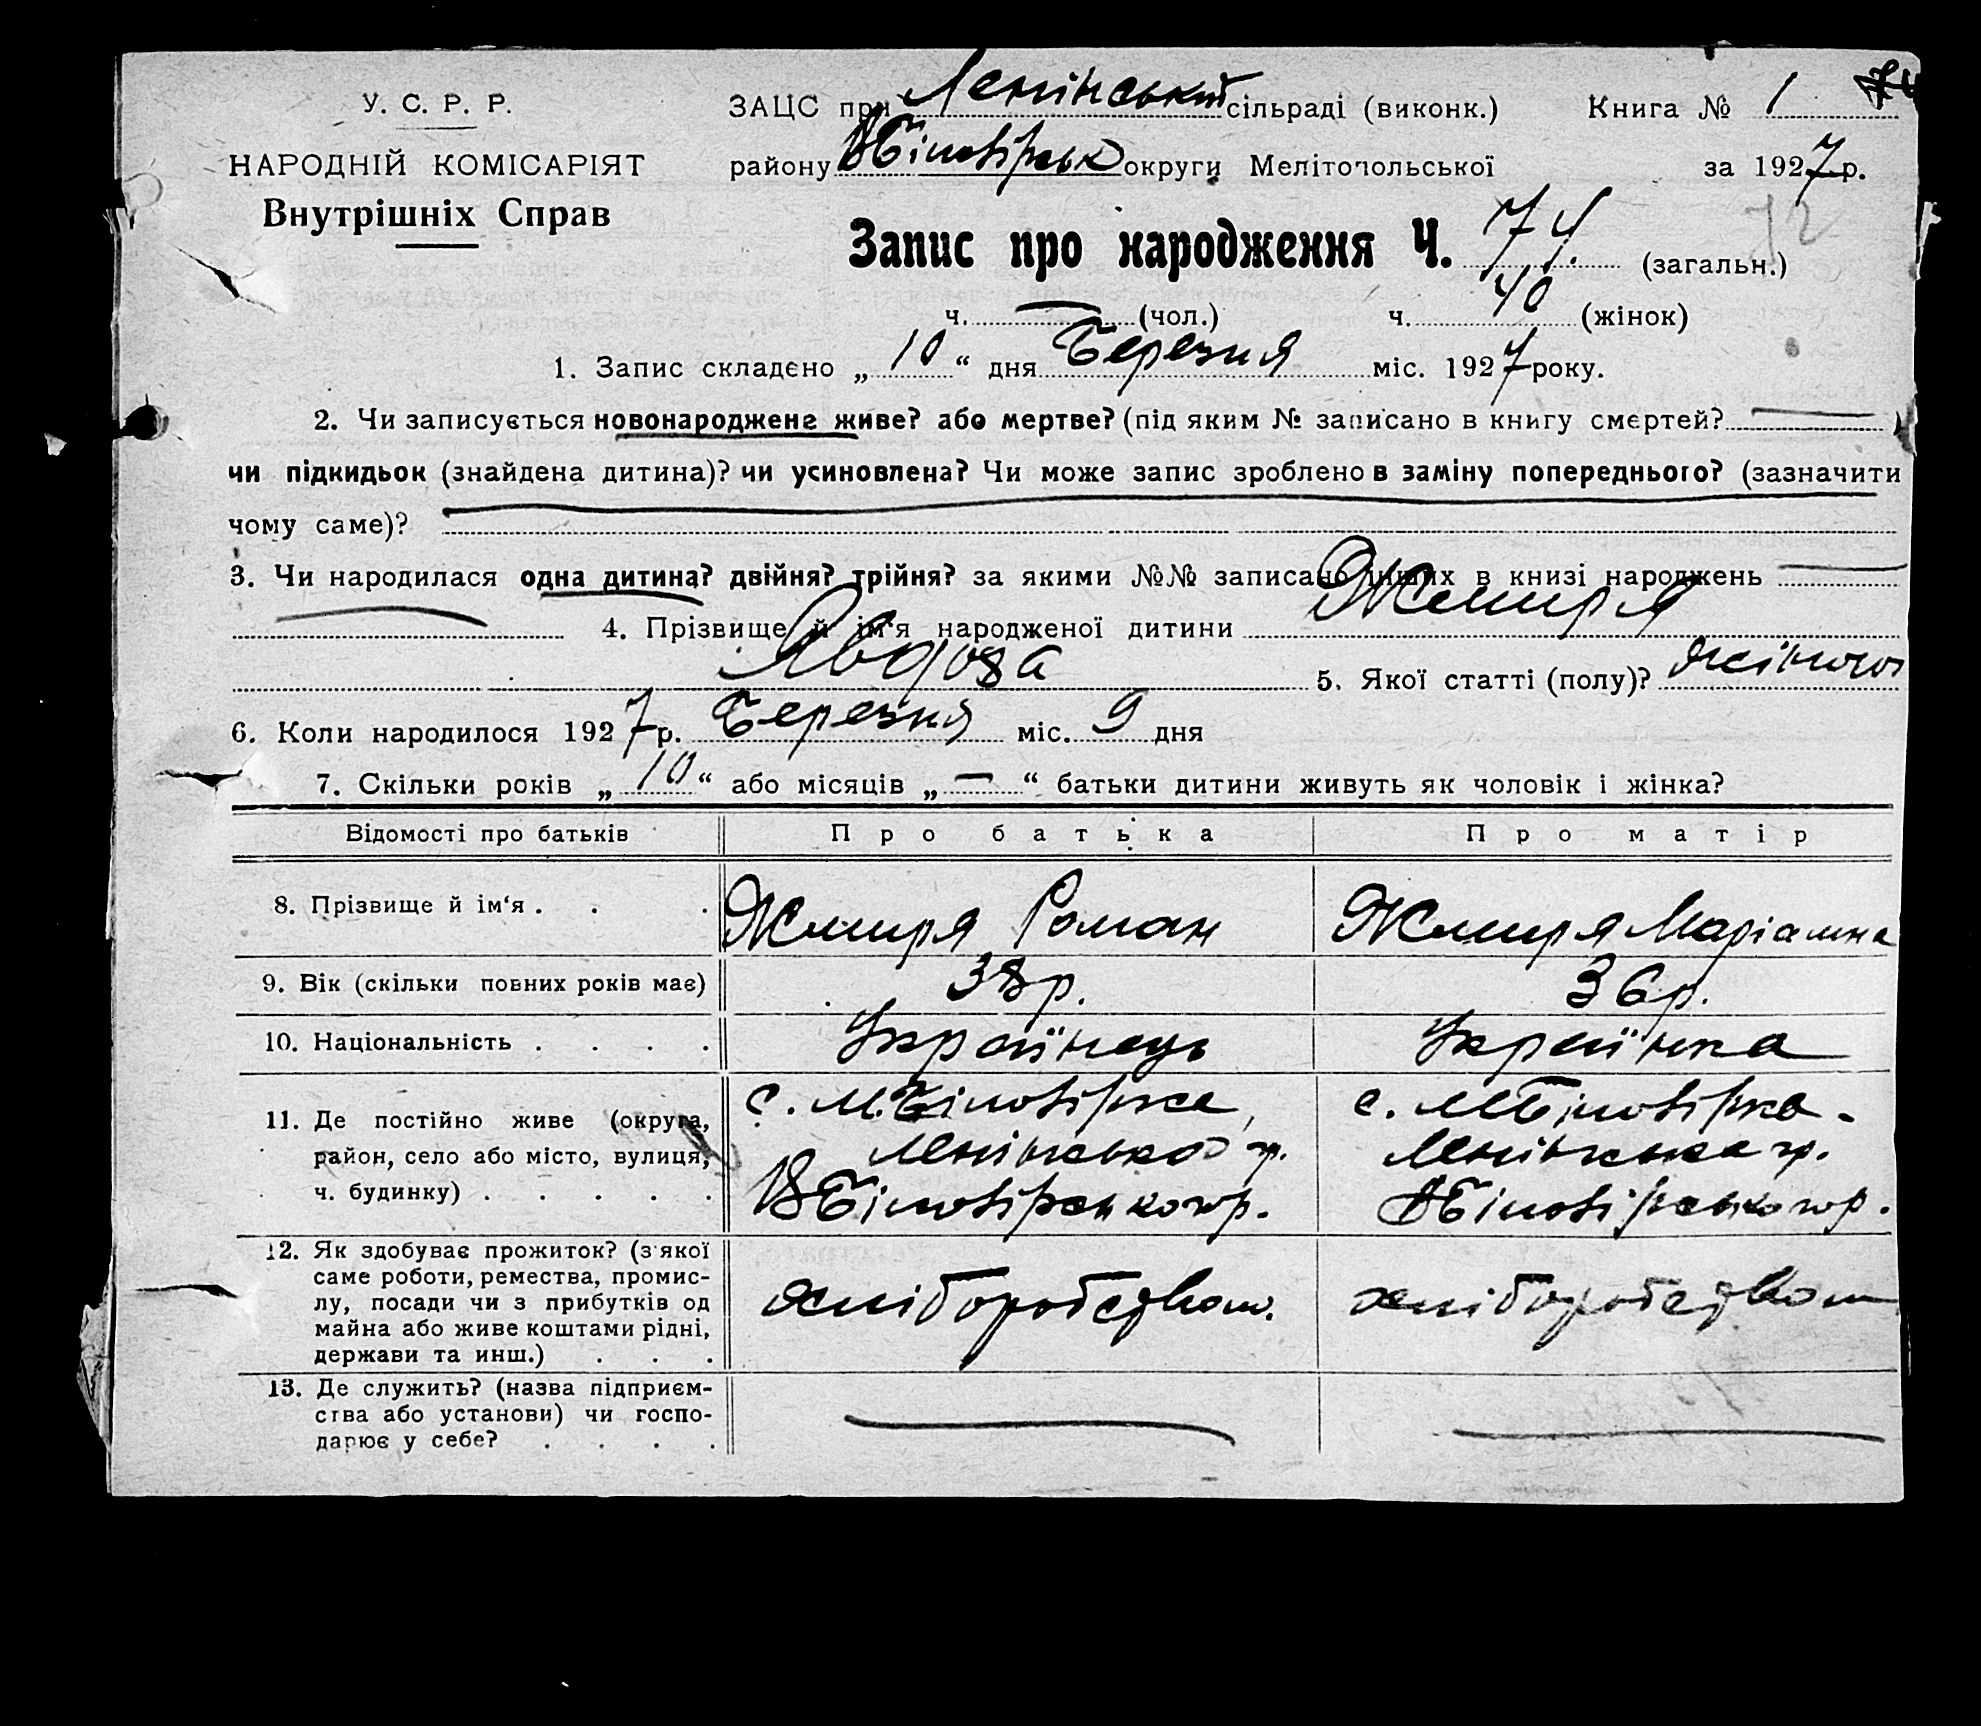 У. С. Р. Р.
НАРОДНІЙ КОМІСАРІЯТ
Внутрішніх Справ
ЗАЦС при Ленінській сільраді (виконк.) Книга № 1 74
району ВБіловірськ округи Мелітопольської за 1927 р.
Запис про народження Ч. 74. (загальн.) 72
ч. — (чол.) ч. 40 (жінок)
1. Запис складено „ 10 “ дня Березня міс. 1927 року.
2. Чи записується новонароджене живе? або мертве? (під яким № записано в книгу смертей? —
чи підкидьок (знайдена дитина)? чи усиновлена? Чи може запис зроблено в заміну попереднього? (зазначити
чому саме)?
3. Чи народилася одна дитина? двійня? трійня? за якими №№ записано инших в книзі народжень —
4. Прізвище й ім'я народженої дитини Жмиря
Явдоха 5. Якої статті (полу)? жіночої
6. Коли народилося 1927 р. Березня міс. 9 дня
7. Скільки років „ 10 “ або місяців „ — “ батьки дитини живуть як чоловік і жінка?
Відомості про батьків Про батька Про матір
8. Прізвище й ім'я . . . Жмиря Роман Жмиря Маріамна
9. Вік (скільки повних років має) 38 р. 36 р.
10. Національність . . . . Українець Українка
11. Де постійно живе (округа,
район, село або місто, вулиця,
ч. будинку) . . . . .
с. М.Біловірка,
Ленінської р.
ВБіловірського р.
с. МБіловірка.
Ленінська р.
ВБіловірського р.
12. Як здобуває прожиток? (з якої
саме роботи, ремества, промис-
лу, посади чи з прибутків од
майна або живе коштами рідні,
держави та инш.) . . .
хліборобством. хліборобством
13. Де служить? (назва підприєм-
ства або установи) чи госпо-
дарює у себе? . . . .